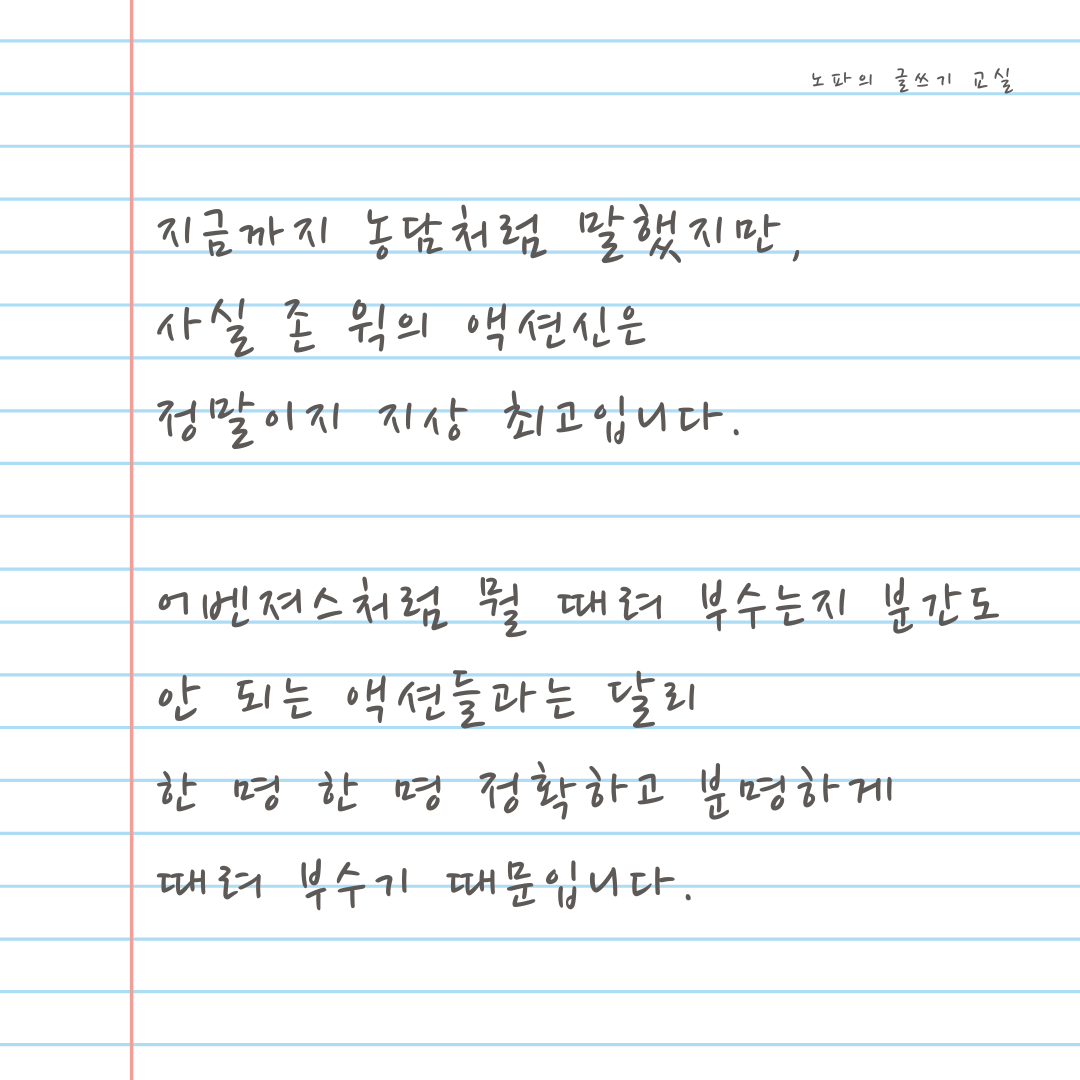 노파의 글쓰기 교실
지금까지 농담처럼 말했지만,
사실 존 윅의 액션신은
정말이지 지상 최고입니다.
어벤져스처럼 뭘 때려 부수는지 분간도
안 되는 액션들과는 달리
한 명 한 명 정확하고 분명하게
때려 부수기 때문입니다.